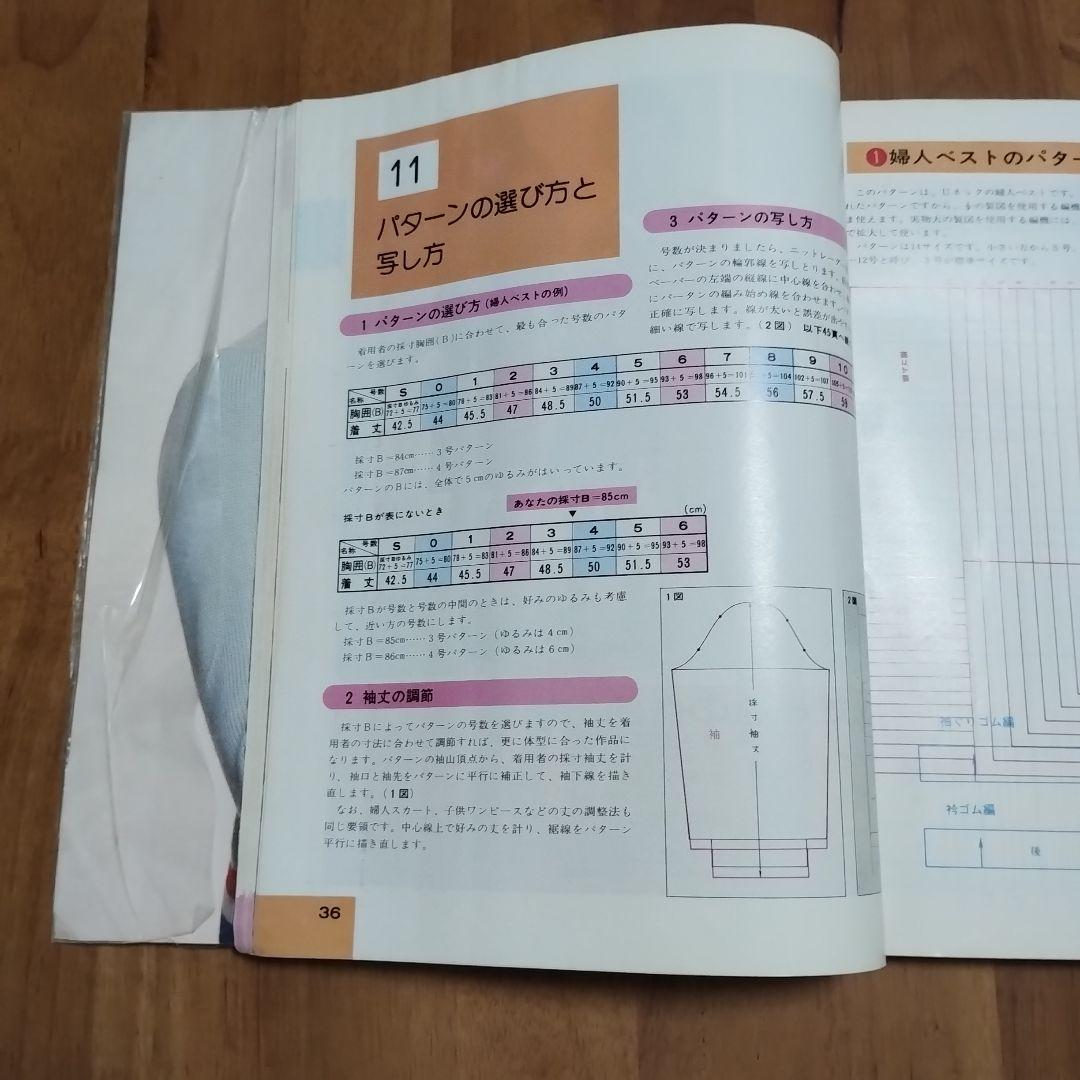 11
パターンの選び方と
写し方
1 パターンの選び方(婦人ベストの例)
着用者の採寸胸囲(B)に合わせて、最も合った号数のパタ
ーンを選びます。
号数 S 0 1 2 3 4 5 6 7 8 9 10
名称 採寸Bゆるみ
胸囲(B) 72+5=77 75+5=80 78+5=83 81+5=86 84+5=89 87+5=92 90+5=95 93+5=98 96+5=101 5=104 102+5=107
着丈 42.5 44 45.5 47 48.5 50 51.5 53 54.5 56 57.5 59
採寸B=84cm……3号パターン
採寸B=87cm……4号パターン
パターンのBには、全体で5cmのゆるみがはいっています。
採寸Bが表にないとき
あなたの採寸B=85cm
(cm)
号数 S 0 1 2 3 4 5 6
名称 採寸Bゆるみ
胸囲(B) 72+5=77 75+5=80 78+5=83 81+5=86 84+5=89 87+5=92 90+5=95 93+5=98
着丈 42.5 44 45.5 47 48.5 50 51.5 53
採寸Bが号数と号数の中間のときは、好みのゆるみも考慮
して、近い方の号数にします。
採寸B=85cm……3号パターン(ゆるみは4cm)
採寸B=86cm……4号パターン(ゆるみは6cm)
2 袖丈の調節
採寸Bによってパターンの号数を選びますので、袖丈を着
用者の寸法に合わせて調節すれば、更に体型に合った作品に
なります。パターンの袖山頂点から、着用者の採寸袖丈を計
り、袖口と袖先をパターンに平行に補正して、袖下線を描き
直します。(1図)
なお、婦人スカート、子供ワンピースなどの丈の調整法も
同じ要領です。中心線上で好みの丈を計り、裾線をパターン
平行に描き直します。
36
3 パターンの写し方
号数が決まりましたら、ニットレーダー
に、パターンの輪郭線を写しとります。
ペーパーの左端の縦線に中心線を合わせ、
にパータンの編み始め線を合わせます。
正確に写します。線が太いと誤差が
細い線で写します。(2図) 以下45頁へ
1図
袖
採寸袖丈
2図
1 婦人ベストのパター
このパターンは、Uネックの婦人ベストです。
れたパターンですから、の製図を使用する編機
ま使えます。実物大の製図を使用する編機には、
で拡大して使います。
パターンは14サイズです。小さい方からS号、
ー12号と呼び、3号が標準サイズです。
裾ゴム編
袖ぐりゴム編
衿ゴム編
後